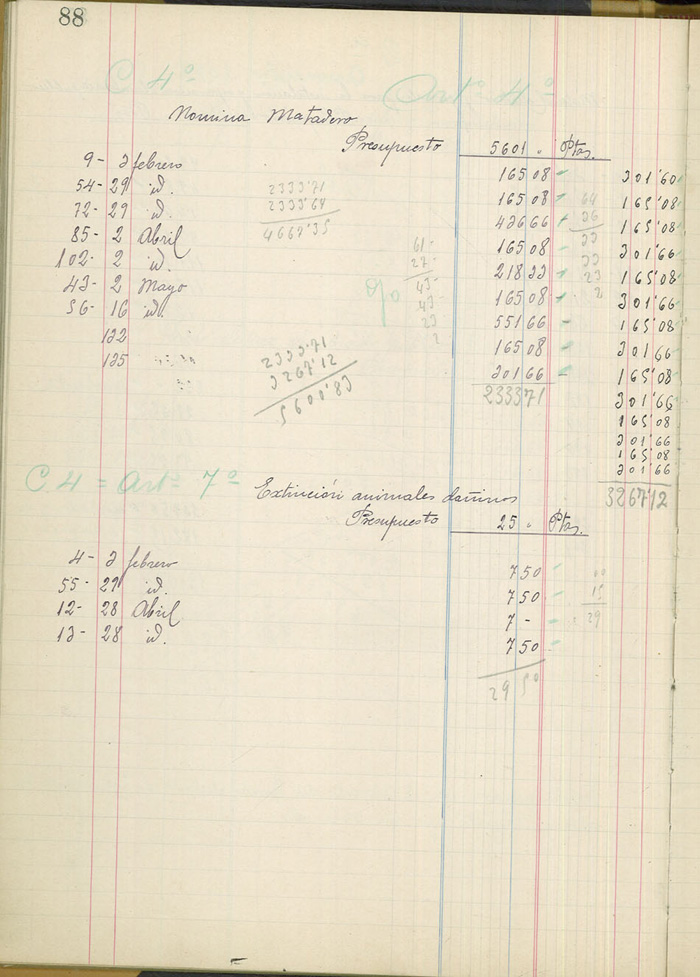 88
C 4º Artº 4º
Nomina Matadero
Presupuesto 5601 " Ptas.
9- 3 febrero 165 08 301'60
54- 29 id. 2333'71 165 08 165'08
72- 29 id. 2333'64 436 66 165'08
85- 2 Abril 4667'35 165 08 301'66
102- 2 id. 218 33 165'08
43- 2 Mayo 165 08 301'66
56- 16 id. 551 66 165'08
132 165 08 301'66
135 301 66 165'08
2333'71
3267'12
5600'83
2333 71 301'66
165'08
301'66
165'08
301'66
3267'12
C. 4 = Artº 7º Extinción animales dañinos
Presupuesto 25 " Ptas.
4- 3 febrero 7 50
55- 29 id. 7 50
12- 28 Abril 7 -
13- 28 id. 7 50
29 50